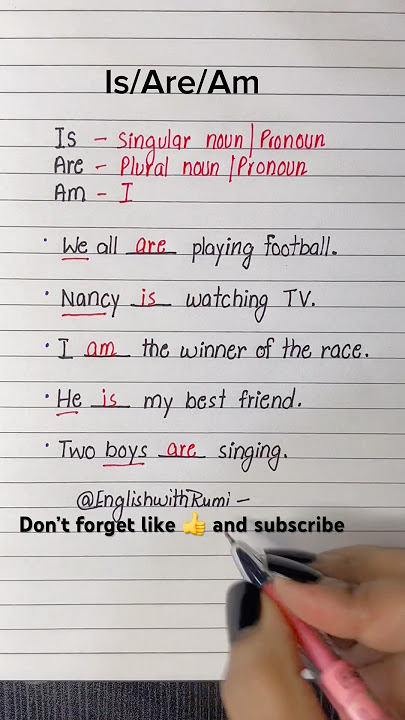 Is/Are/Am
Is - Singular noun | Pronoun
Are - Plural noun | Pronoun
Am - I
• We all are playing football.
• Nancy is watching TV.
• I am the winner of the race.
• He is my best friend.
• Two boys are singing.
@EnglishwithRumi -
Don't forget like 👍 and subscribe